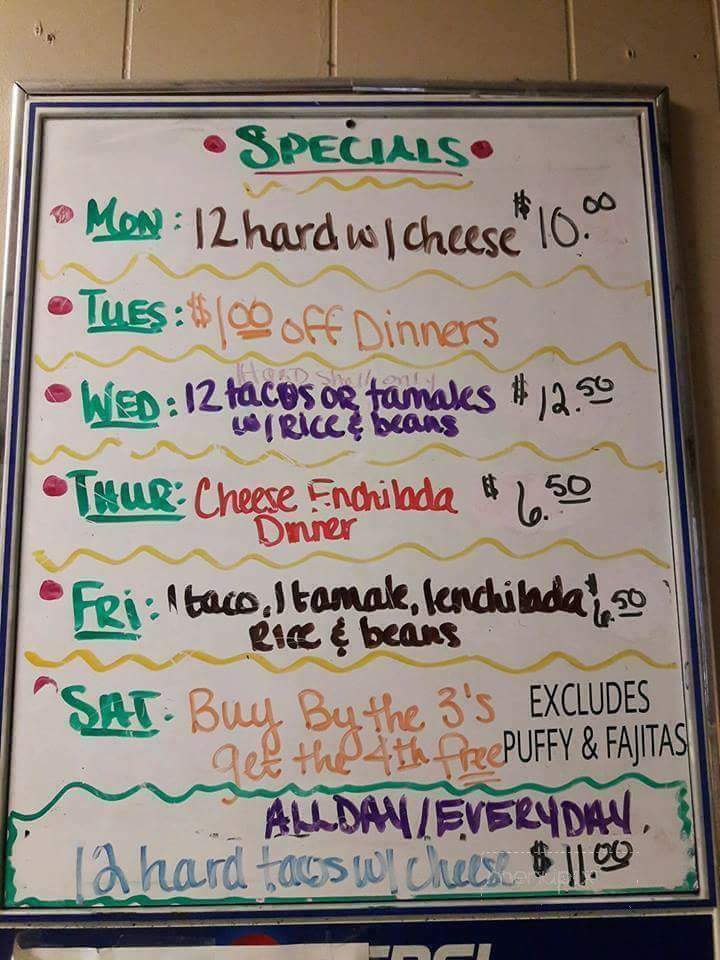 SPECIALS
MON: 12 hard w/ cheese $10.00
TUES: $1.00 off Dinners
HARD Shell only
WED: 12 tacos OR tamales $12.50
w/ RICE & beans
THUR: Cheese Enchilada $6.50
Dinner
FRI: 1 taco, 1 tamale, 1 enchilada $6.50
RICE & beans
SAT: Buy By the 3's EXCLUDES
get the 4th free PUFFY & FAJITAS
ALLDAY/EVERYDAY
12 hard tacos w/ cheese $11.00